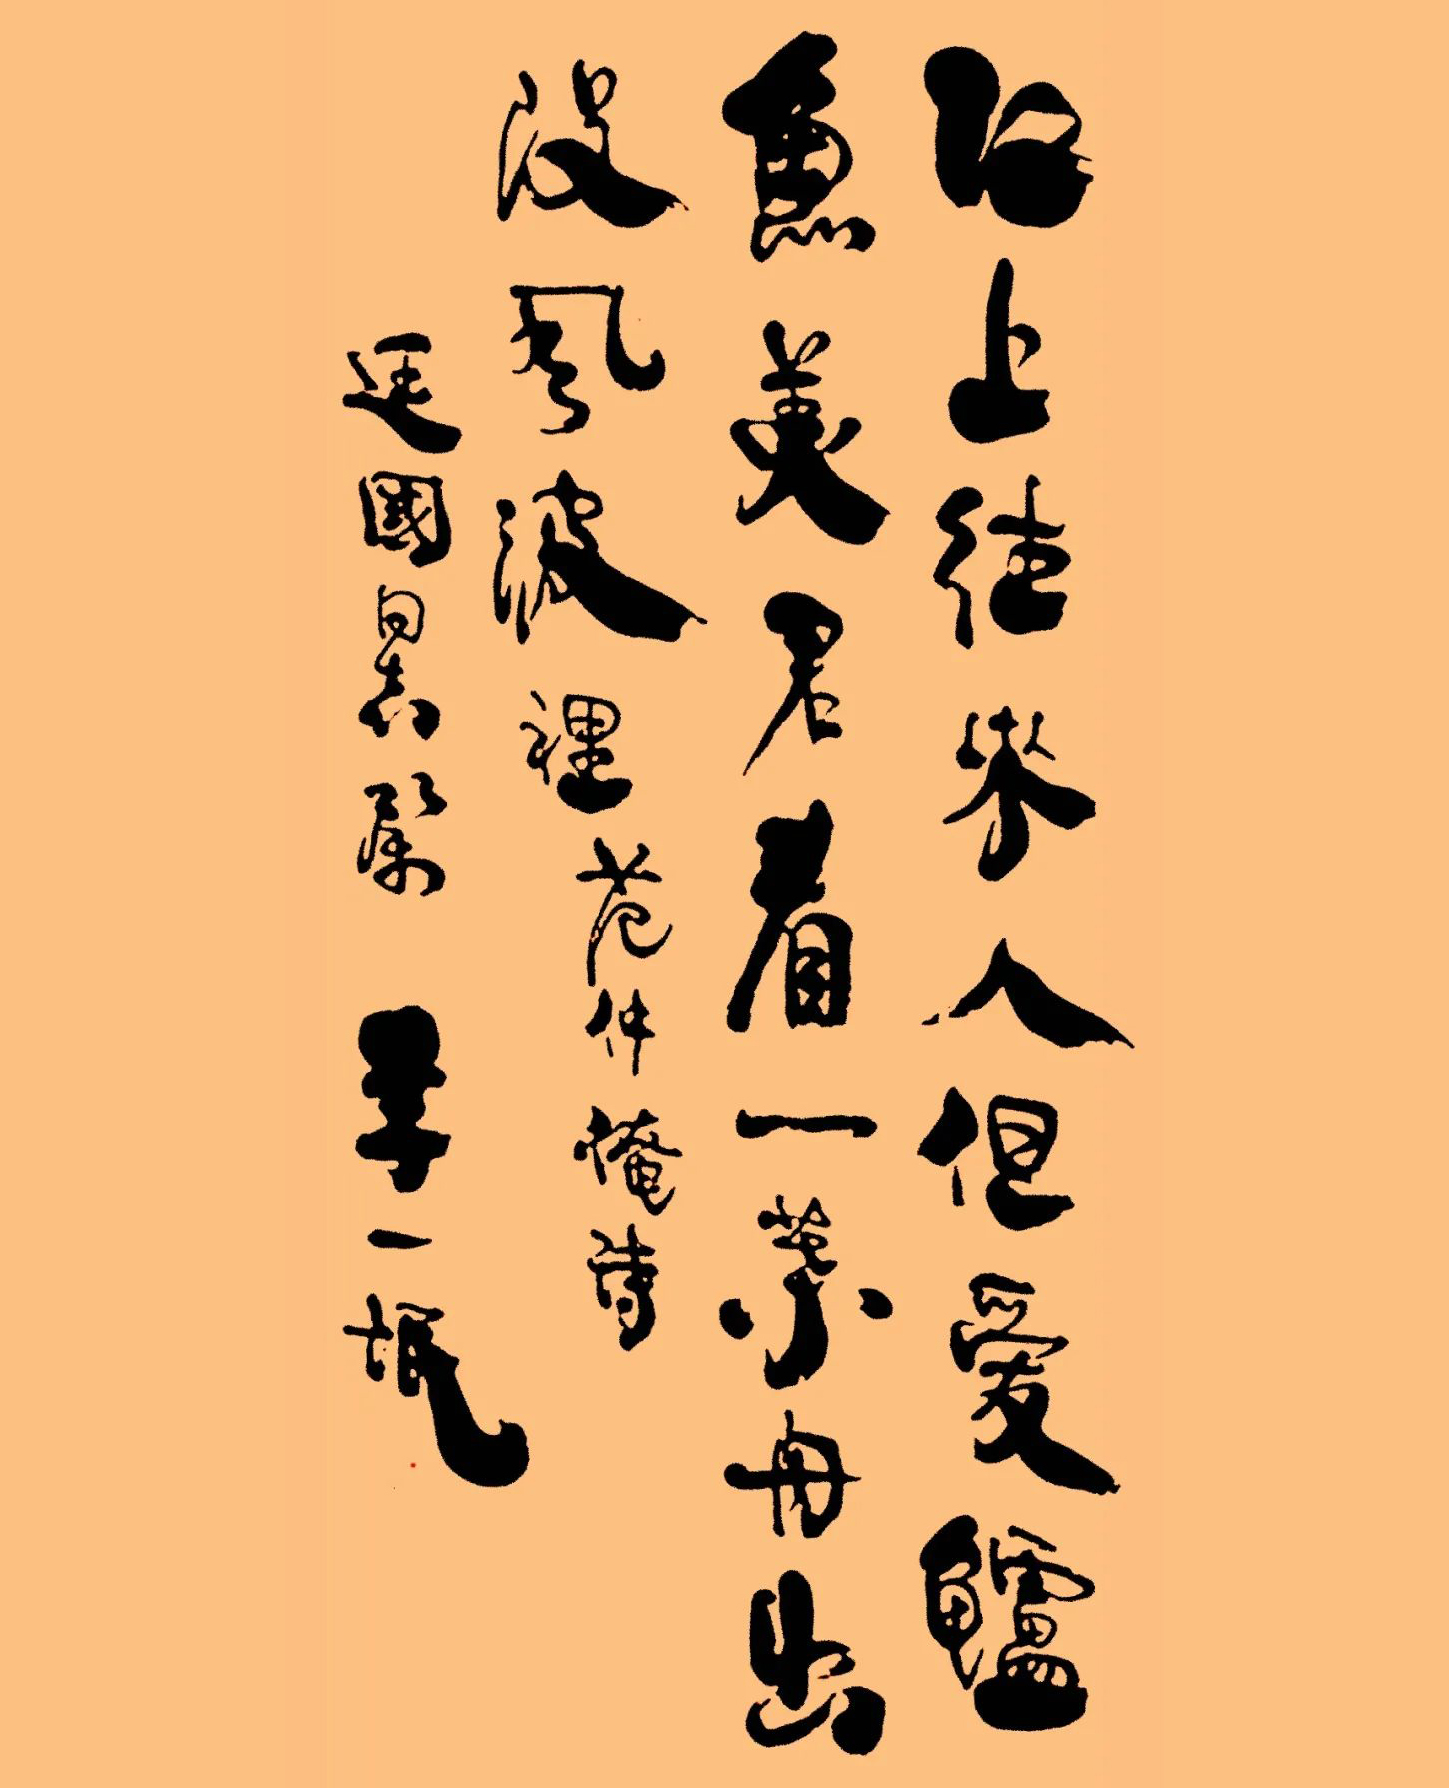 江上往來人但愛鱸
魚美君看一葉舟出
没風波裡范仲淹詩
廷國同志屬 李一氓